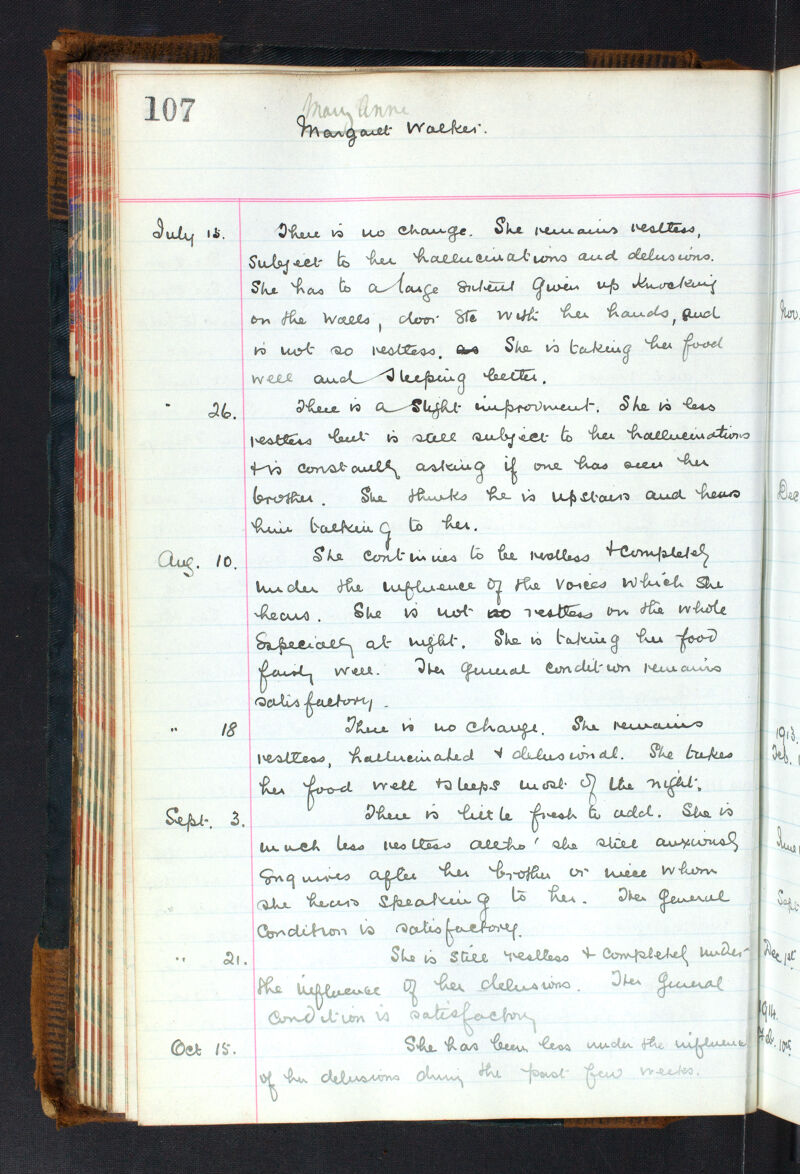 107
Mary Anne
Margaret Walker.
July 15. There is no change. She remains restless,
subject to her hallucinations and delusions.
She has to a large extent given up knocking
on the walls, door etc with her hands, and
is not so restless. as She is taking her food
well and sleeping better.
" 26. There is a slight improvement. She is less
restless but is still subject to her hallucinations
+ is constantly asking if one has seen her
brother. She thinks he is upstairs and hears
him talking to her.
Aug. 10. She continues to be restless + completely
under the influence of the voices which she
hears. She is not so restless on the whole
especially at night. She is taking her food
fairly well. Her general condition remains
satisfactory.
" 18 There is no change. She remains
restless, hallucinated + delusional. She takes
her food well + sleeps most of the night.
Sept. 3. There is little fresh to add. She is
much less restless altho' she still anxiously
enquires after her brother or niece whom
she hears speaking to her. Her general
condition is satisfactory.
" 21. She is still restless + completely under
the influence of her delusions. Her general
condition is satisfactory
Oct 15. She has been less under the influence
of her delusions during the past few weeks.
Nov.
Dec
1913.
Feb.
June
Sept
Dec 1st
1914.
Feb. 10th